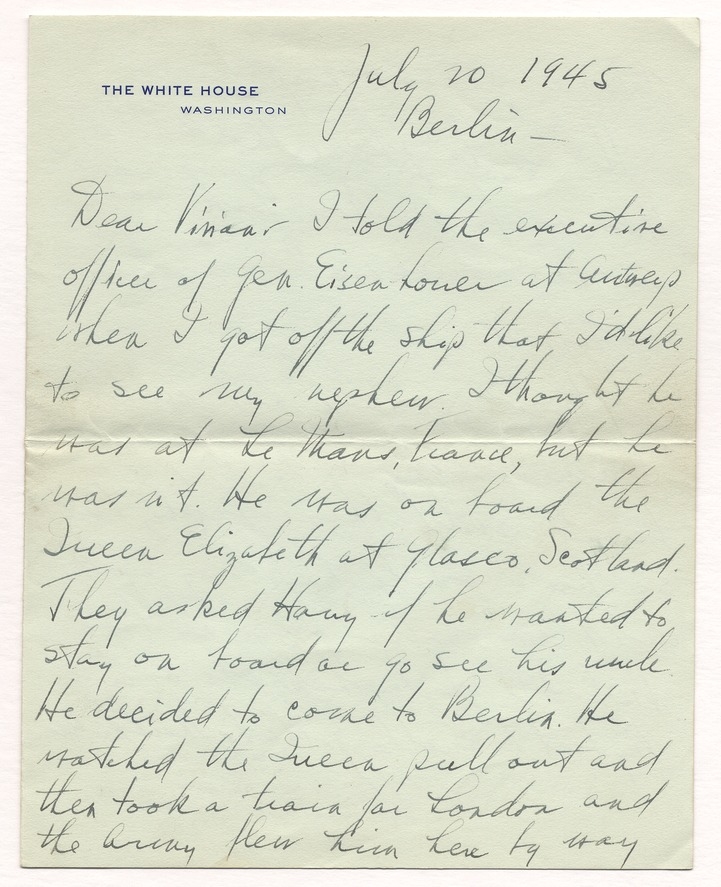 THE WHITE HOUSE
WASHINGTON
July 20 1945
Berlin —
Dear Vivian:- I told the executive
officer of Gen. Eisenhower at Antwerp
when I got off the ship that I'd like
to see my nephew. I thought he
was at Le Mans, France, but he
was n't. He was on board the
Queen Elizabeth at Glasco, Scotland.
They asked Harry if he wanted to
stay on board or go see his uncle.
He decided to come to Berlin. He
watched the Queen pull out and
then took a train for London and
the Army flew him here by way